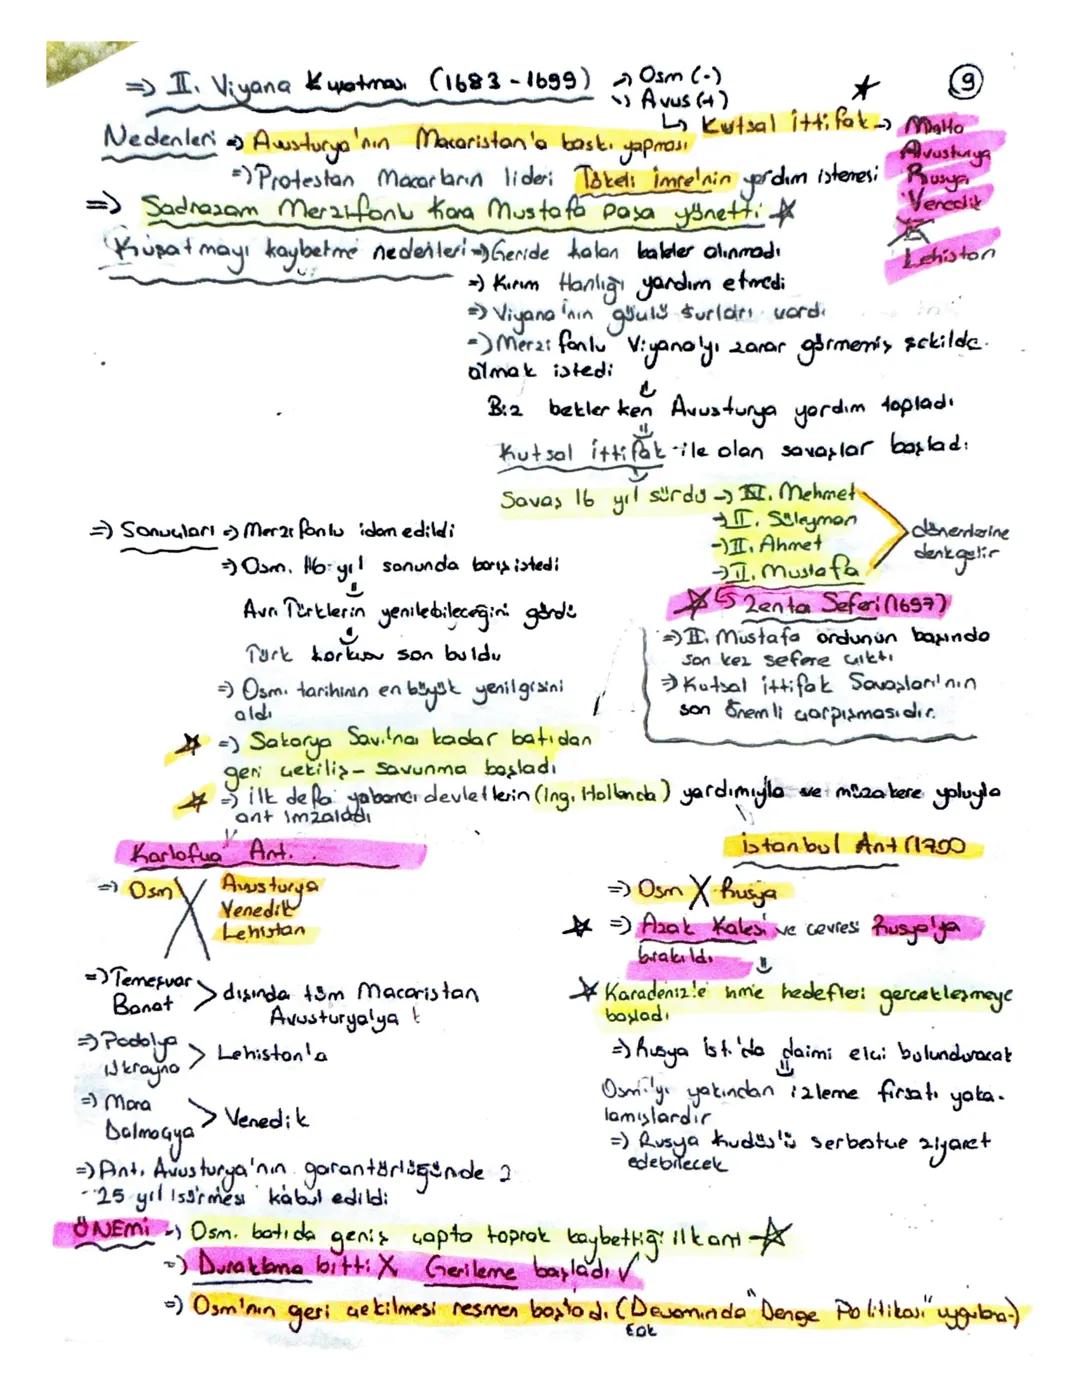 => II. Viyana Kuşatması (1683-1699) -> Osm (-)
-> Avus (+)
9
↳ Kutsal İttifak -> Malta
Avusturya
Rusya
Venedik
Lehistan
Nedenleri => Avusturya'nın Macaristan'a baskı yapması
=> Protestan Macarların lideri Tökeli İmre'nin yardım istemesi
=> Sadrazam Merzifonlu Kara Mustafa Paşa yönetti ☆
Kuşatmayı kaybetme nedenleri => Geride kalan kaleler alınmadı
=> Kırım Hanlığı yardım etmedi
=> Viyana'nın güçlü surları vardı
=> Merzifonlu Viyana'yı zarar görmemiş şekilde
almak istedi
Biz beklerken Avusturya yardım topladı
Kutsal ittifak ile olan savaşlar başladı
Savaş 16 yıl sürdü -> IV. Mehmet
-> II. Süleyman
-> II. Ahmet
-> II. Mustafa
dönemlerine
denk gelir
☆ ↳ Zenta Seferi (1697)
=> II. Mustafa ordunun başında
son kez sefere çıktı
=> Kutsal ittifak Savaşları'nın
son önemli çarpışmasıdır.
=> Sonuçları => Merzifonlu idam edildi
=> Osm. 16 yıl sonunda barış istedi
Avr. Türklerin yenilebileceğini gördü
Türk korkusu son buldu
=> Osm. tarihinin en büyük yenilgisini
aldı
☆ => Sakarya Sav.'na kadar batıdan
geri çekiliş - savunma başladı
☆ => ilk defa yabancı devletlerin (ing, Hollanda) yardımıyla ve müzakere yoluyla
ant imzaladı
Karlofça Ant.
=> Osm X Avusturya
Venedik
Lehistan
=> Temeşvar
Banat > dışında tüm Macaristan
Avusturya'ya
=> Podolya
Ukrayna > Lehistan'a
=> Mora
Dalmaçya > Venedik
=> Ant. Avusturya'nın garantörlüğünde
25 yıl sürmesi kabul edildi
istanbul Ant (1700
=> Osm X Rusya
☆ => Azak Kalesi ve çevresi Rusya'ya
bırakıldı
☆ Karadeniz'e inme hedefleri gerçekleşmeye
başladı
=> Rusya İst.'da daimi elçi bulunduracak
Osm.'yı yakından izleme fırsatı yaka-
lamışlardır
=> Rusya Kudüs'ü serbestçe ziyaret
edebilecek
ÖNEMİ => Osm. batıda geniş çapta toprak kaybettiği ilk ant ☆
=> Duraklama bitti X Gerileme başladı ✓
=> Osm'nın geri çekilmesi resmen başladı (Devamında "Denge Politikası" uygulana-)
cak